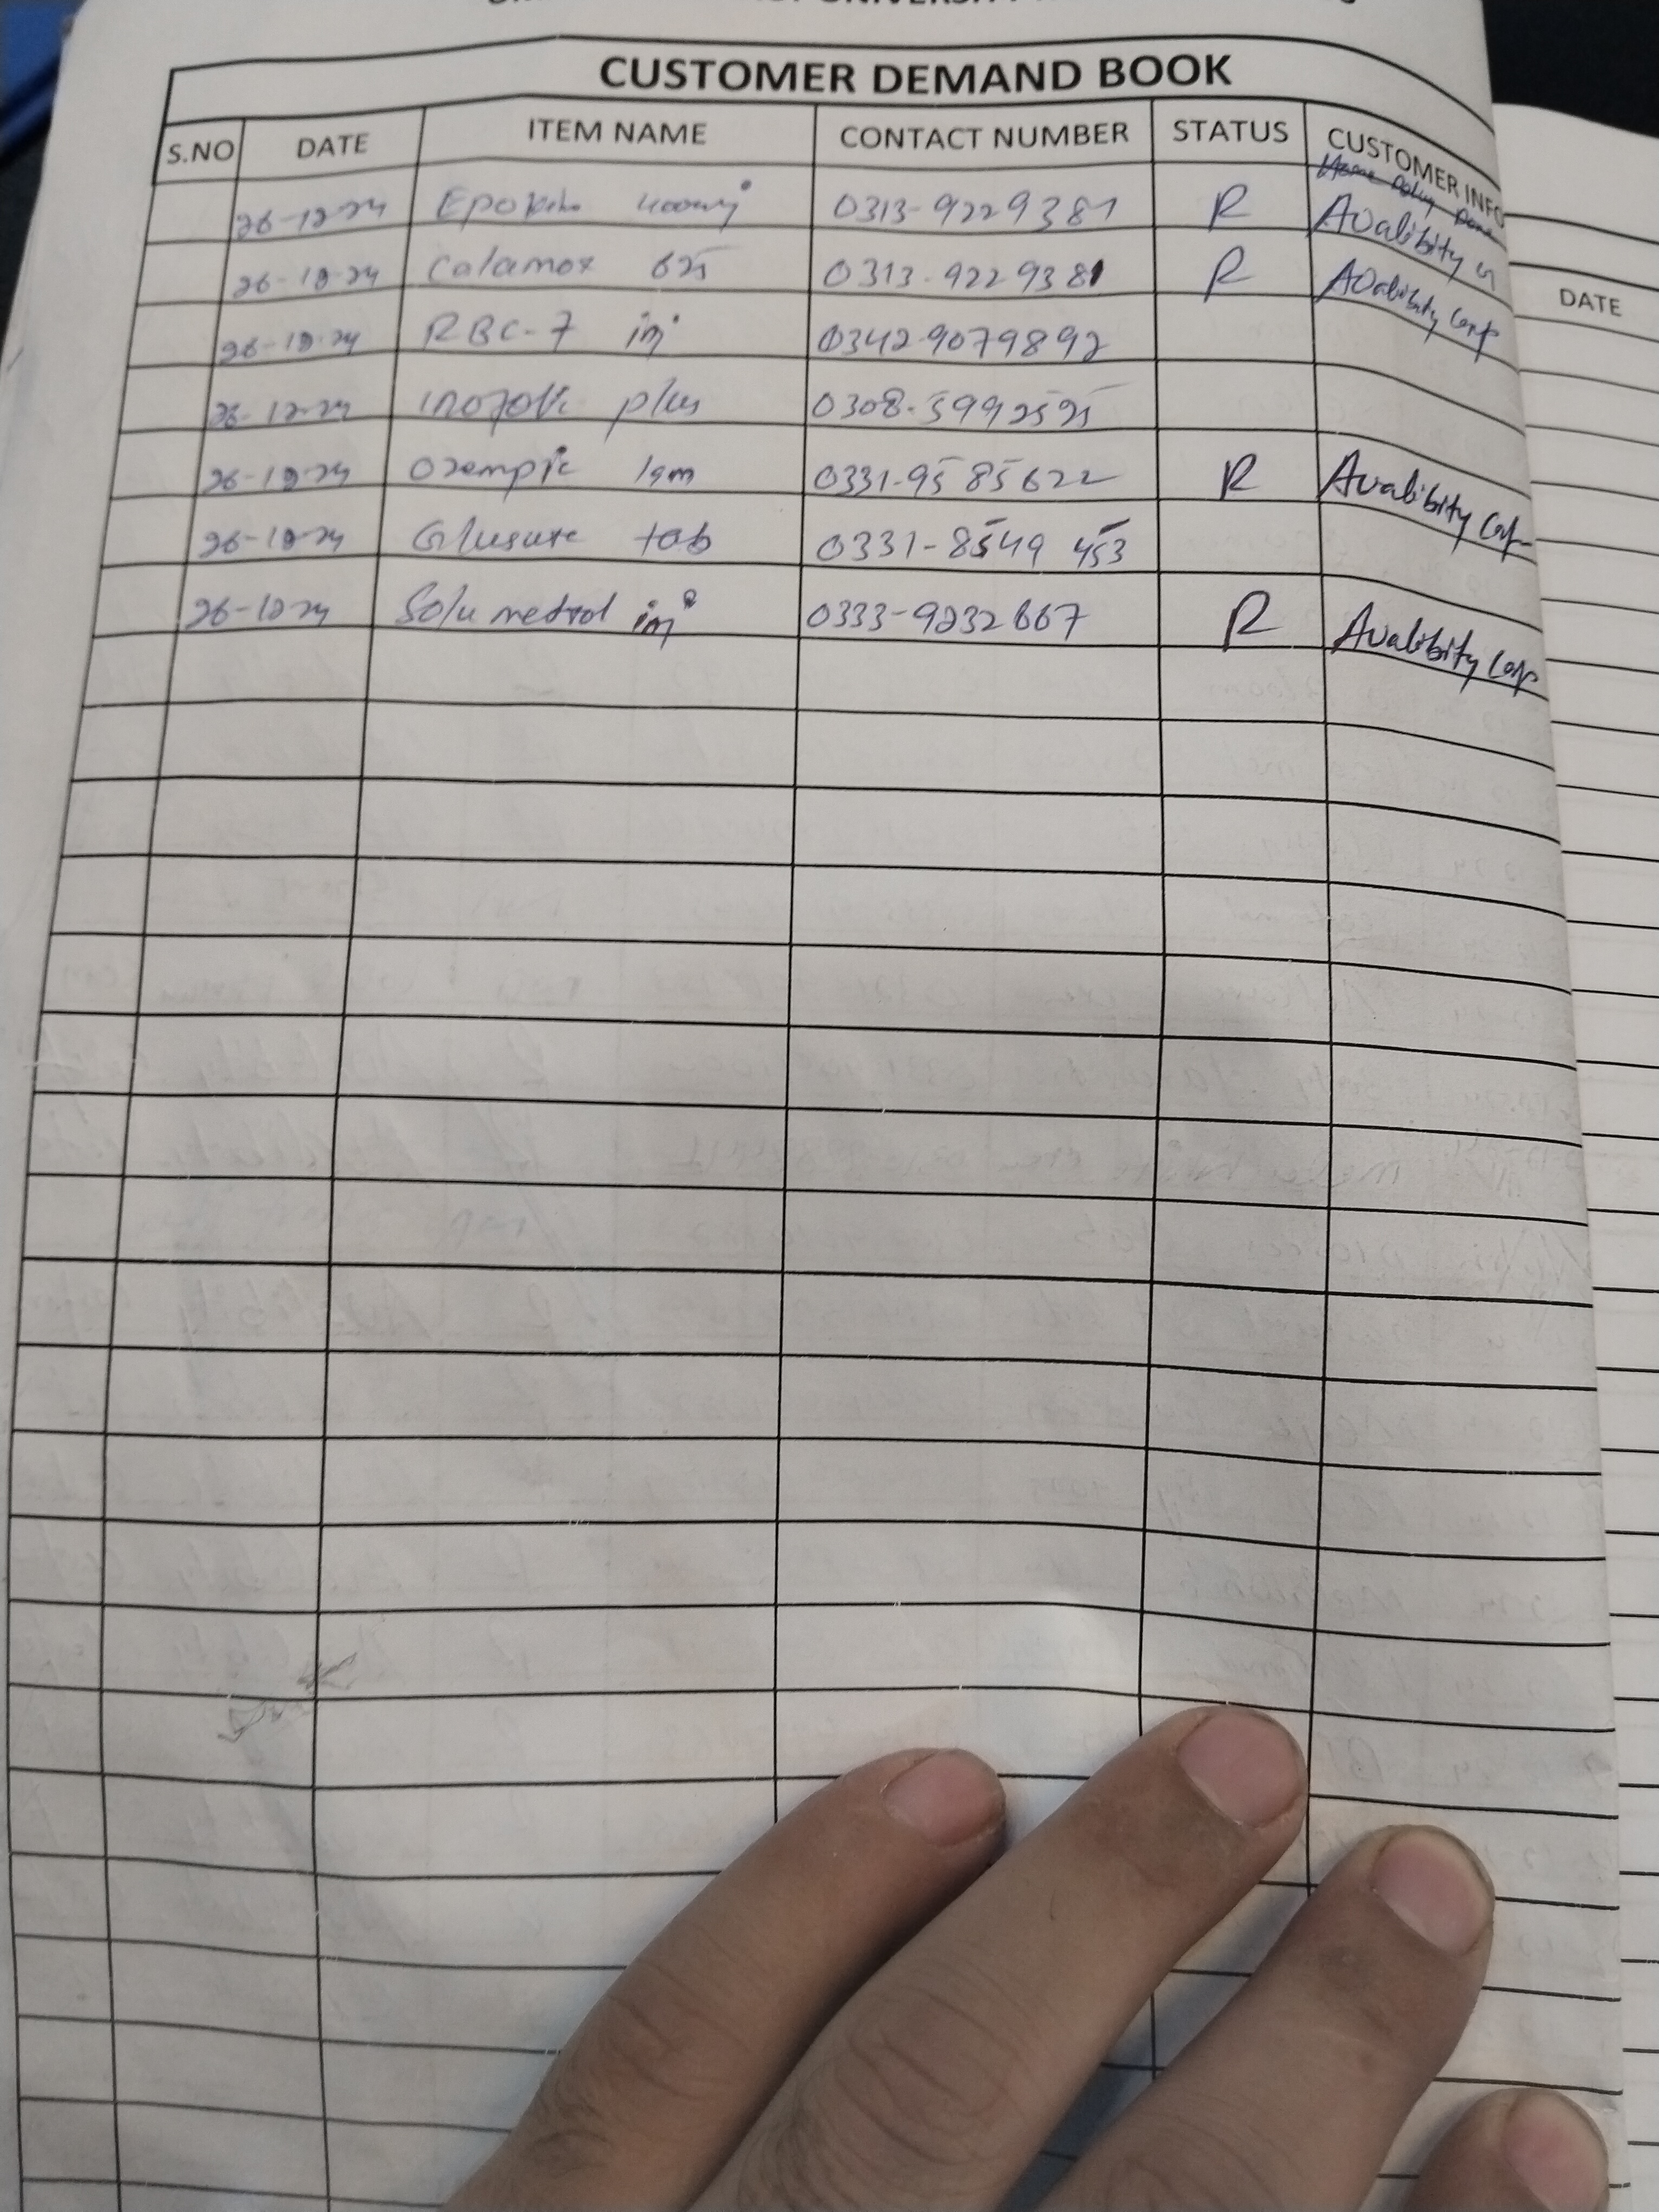 UNIVERSITY
CUSTOMER DEMAND BOOK
S.NO DATE ITEM NAME CONTACT NUMBER STATUS CUSTOMER INFO
26-12-24 0313-9229381 R Avalibity
26-12-24 Calamox 625 0313-9229381 R Avalibity Conf
26-12-24 RBC-7 inj 0342-9079892
26-12-24 plus 0308-5992525
26-12-24 Ozempic 1gm 0331-9585622 R Avalibity Conf
26-12-24 Glusure tab 0331-8549 453
26-12-24 Solu medrol inj 0333-9232667 R Avalibity Conf
DATE